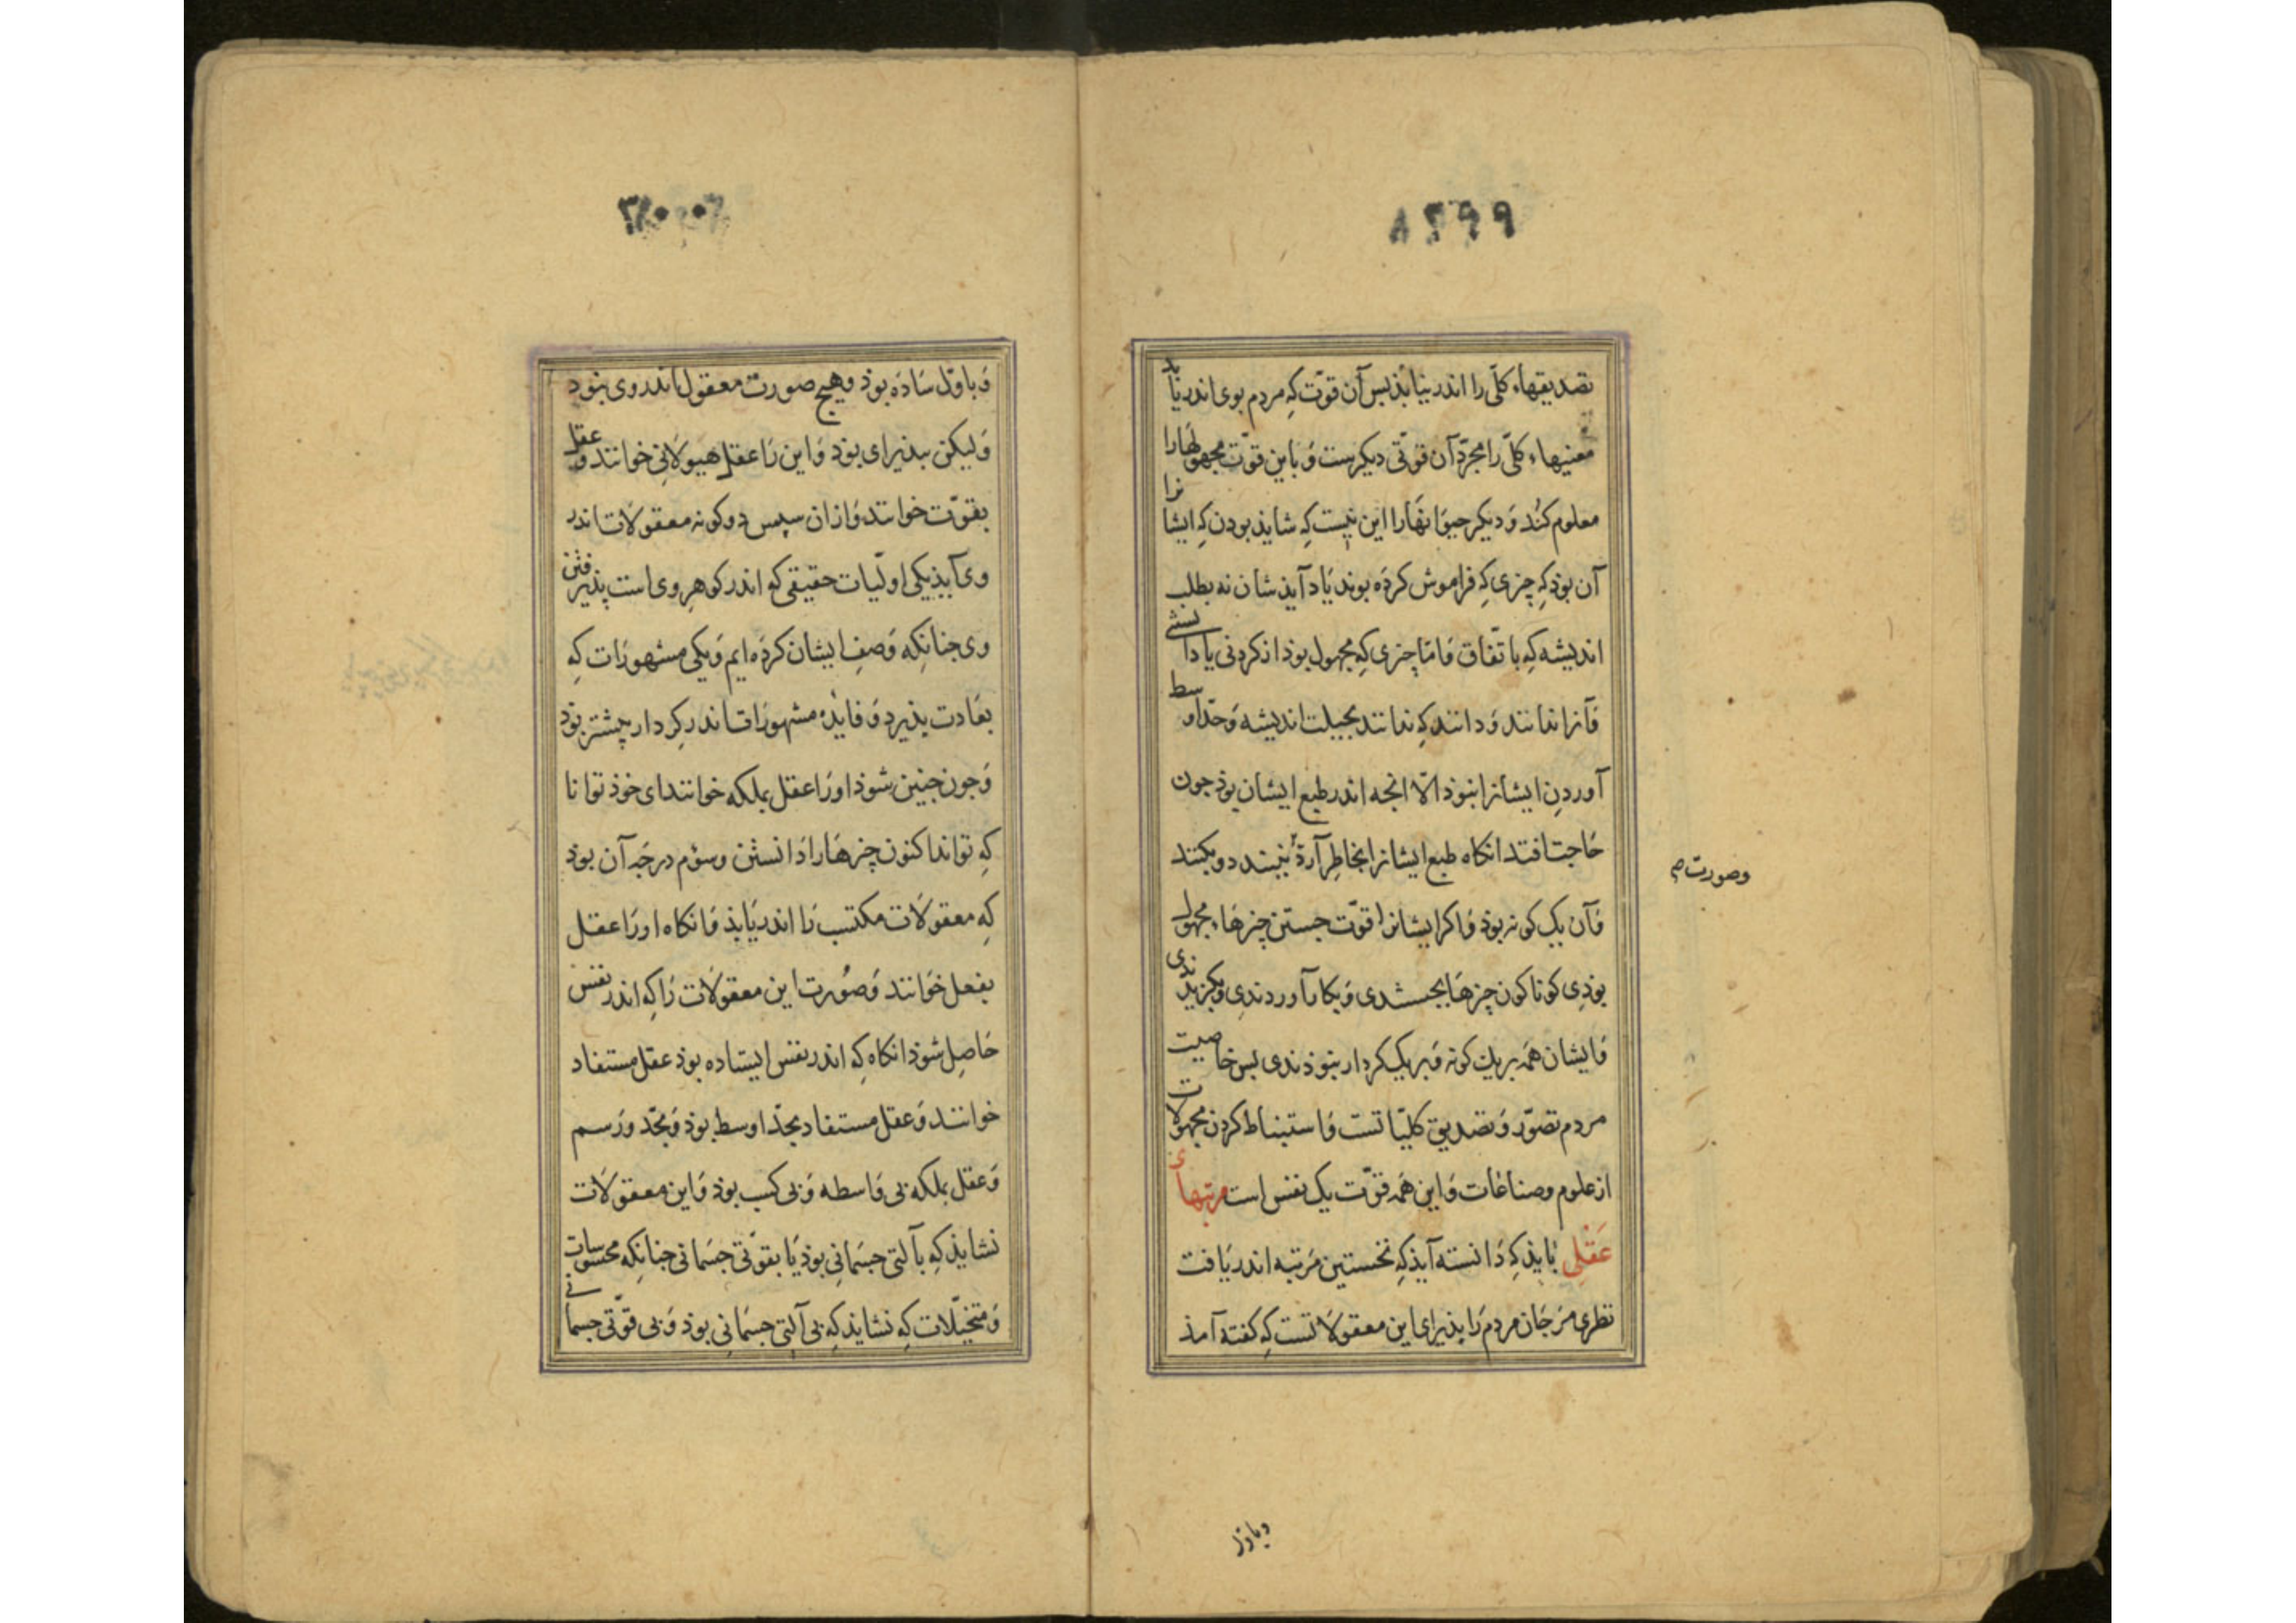 ٨٢٩٩
تصدیقهاء کلّی را اندر نیابذ بس آن قوّت کِه مردم بوی اندر یابد
معنیهاء کلّی را مجرّد آن قوّتی دیکرست وَ باین قوّت مجهولهَا را
معلوم کنُد وَ دیکر حیوَانهَا را این نیست کِه شاید بودن کِه ایشانرا
آن بوذ کِه چیزی کِه فراموش کردَه بوند یَاد آیذشان نه بطلب
اندیشه کِه باتّفاق فامّا چیزی کِه مجهول بوذ از کردنی یا دانستنی
وَ آنرا ندانند وَ دانند کِه ندانند بحیلت اندیشه وَ حدّ اوسط
آوردنِ ایشانرا نبوذ الّا انجه اندر طبع ایشان بوذ جون
حَاجت افتد انکاه طبع ایشانرا بخاطِر آرد ببینند و بکنند
وصورت م
وَ آن یک کونه بوذ وَ اکر ایشانرا قوّت جستن چیزهَاء مجهول
بوذِی کوناکون چیزهَا بجستندی وَ بکار آوردندِی و بکزیدندی
وَ ایشان همَه بریک کونه وَ بریک کردار نبوذندی بس خاصیت
مردم تصوّر وَ تصدیق کلیّاتست وَ استنباط کردن مجهولات
از علوم وصناعَات وَ این همَه قوّت یک نفس است مرتبهاء
عَقلِی بَایذ کِه دَانسته آیذ کِه نخستین مَرتبه اندر یَافت
نظری مرَ جَان مردم رَا پذیرای این معقولاتست کِه کفته آمذ
وباوّل
وَ باوّل سَادَه بوذ وهیچ صورت معقول اندر وی نبوذ
وَ لیکن بپذیرای بوذ وَ این رَا عقل هیولَانیِ خوانند و عقل
بقوّت خوانند وَ ازان سپس دوکونه معقولَات اندر
وی آیذ یکی اوّلیّات حقیقی که اندر کوهر وی است پذیرفتن
وی جنانکِه وَصفِ ایشان کردَه ایم وَ یکی مشهورَات کِه
بعَادت پذیرد وَ فایدۀ مشهورَات اندر کِردار پیشتر بوذ
وَ جون جنین شوذ اورَا عقل بملکه خوانند ای خوذ توانا
کِه تواند اکنون چیزهَا رَا دَانستن وسوُم درجَه آن بوذ
کِه معقولَات مکتسب رَا اندر یَابذ وَ انکاه اورَا عقل
بفعل خوَانند وَ صُورت این معقولَات رَا کِه اندر نفس
حَاصِل شوذ انکاه کِه اندر نفس ایستاده بوذ عقل مستفاد
خوانند وَ عقل مستفاد بحدّ اوسط بوذ وَ بحّد ورَسم
وَ عقل بملکه بی وَاسطه وَ بی کسب بوذ وَ این معقولَات
نشایذ کِه بآلتی جسَمانیِ بوذ یَا بقوّتی جسَمانی جنانکِه محسوسات
وَ متخیّلات کِه نشایذ کِه بی آلتیِ جسَمانیِ بوذ وَ بی قوّتی جسمانی